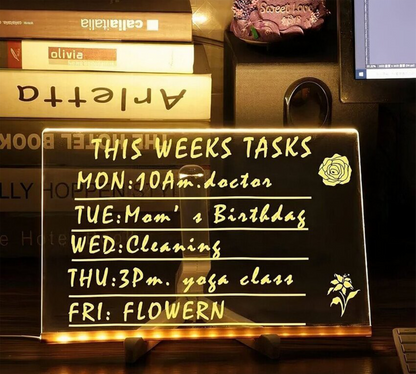 callaitalia
Sweet Love
olivia
Arletta
THE HOTEL BOOK
THIS WEEKS TASKS
MON:10Am.doctor
TUE:Mom's Birthday
WED:Cleaning
THU:3Pm. yoga class
FRI: FLOWERN